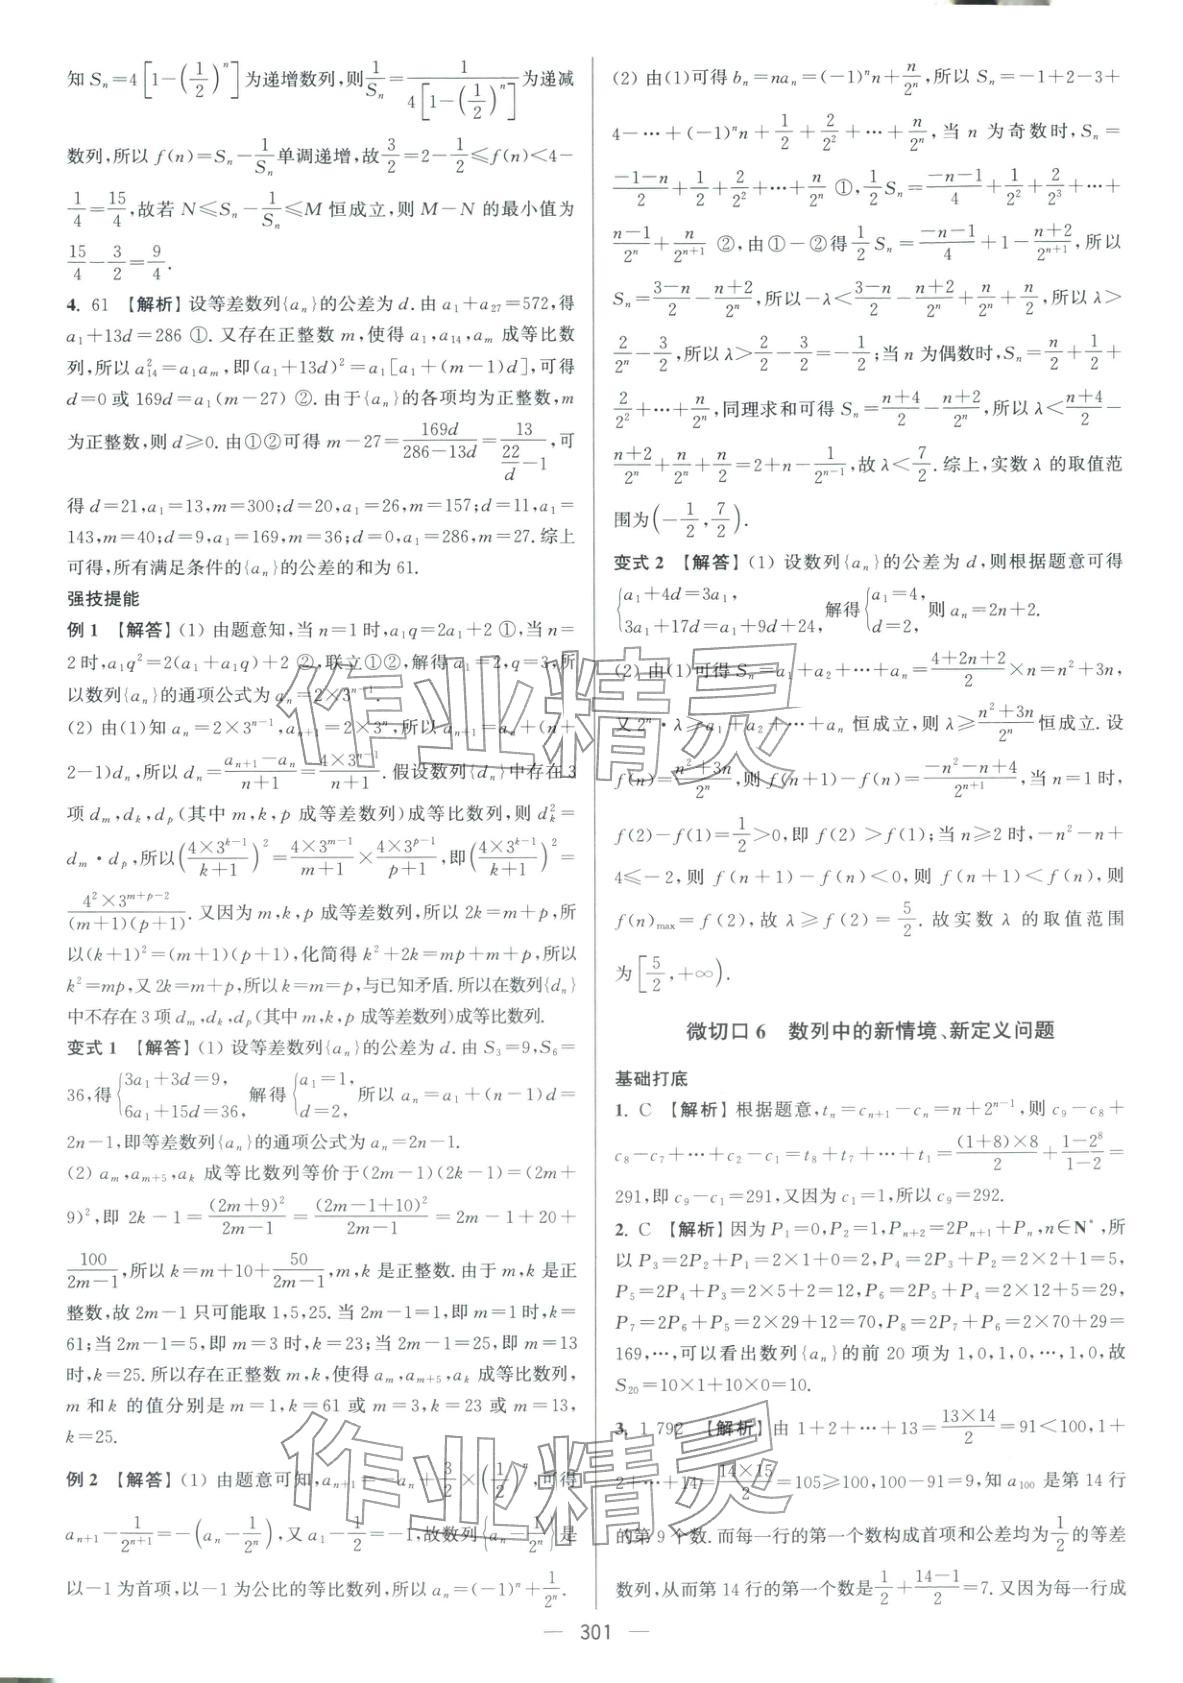 知 Sₙ=4[1-(1/2)ⁿ]为递增数列,则1/Sₙ=1/(4[1-(1/2)ⁿ])为递减
数列,所以 f(n)=Sₙ-1/Sₙ单调递增,故3/2=2-1/2≤f(n)<4-
1/4=15/4,故若 N≤Sₙ-1/Sₙ≤M 恒成立,则 M-N 的最小值为
15/4-3/2=9/4.
4. 61 【解析】设等差数列{aₙ}的公差为 d.由 a₁+a₂₇=572,得
a₁+13d=286 ①.又存在正整数 m,使得 a₁,a₁₄,aₘ 成等比数
列,所以 a₁₄²=a₁aₘ,即(a₁+13d)²=a₁[a₁+(m-1)d],可得
d=0 或 169d=a₁(m-27) ②.由于{aₙ}的各项均为正整数,m
为正整数,则 d≥0.由①②可得 m-27=169d/(286-13d)=13/(22/d-1),可
得 d=21,a₁=13,m=300;d=20,a₁=26,m=157;d=11,a₁=
143,m=40;d=9,a₁=169,m=36;d=0,a₁=286,m=27.综上
可得,所有满足条件的{aₙ}的公差的和为 61.
强技提能
例 1 【解答】(1) 由题意知,当 n=1 时,a₁q=2a₁+2 ①,当 n=
2 时,a₁q²=2(a₁+a₁q)+2 ②,联立①②,解得 a₁=2,q=3,所
以数列{aₙ}的通项公式为 aₙ=2×3ⁿ⁻¹.
(2) 由(1)知 aₙ=2×3ⁿ⁻¹,aₙ₊₁=2×3ⁿ,所以 aₙ₊₁=aₙ+(n+
2-1)dₙ,所以 dₙ=(aₙ₊₁-aₙ)/(n+1)=(4×3ⁿ⁻¹)/(n+1).假设数列{dₙ}中存在 3
项 dₘ,dₖ,dₚ(其中 m,k,p 成等差数列)成等比数列,则 dₖ²=
dₘ·dₚ,所以((4×3ᵏ⁻¹)/(k+1))²=(4×3ᵐ⁻¹)/(m+1)×(4×3ᵖ⁻¹)/(p+1),即((4×3ᵏ⁻¹)/(k+1))²=
(4²×3ᵐ⁺ᵖ⁻²)/((m+1)(p+1)).又因为 m,k,p 成等差数列,所以 2k=m+p,所
以(k+1)²=(m+1)(p+1),化简得 k²+2k=mp+m+p,所以
k²=mp,又 2k=m+p,所以 k=m=p,与已知矛盾.所以在数列{dₙ}
中不存在 3 项 dₘ,dₖ,dₚ(其中 m,k,p 成等差数列)成等比数列.
变式 1 【解答】(1) 设等差数列{aₙ}的公差为 d.由 S₃=9,S₆=
36,得{3a₁+3d=9, 6a₁+15d=36, 解得{a₁=1, d=2, 所以 aₙ=a₁+(n-1)d=
2n-1,即等差数列{aₙ}的通项公式为 aₙ=2n-1.
(2) aₘ,aₘ₊₅,aₖ 成等比数列等价于(2m-1)(2k-1)=(2m+
9)²,即 2k-1=(2m+9)²/(2m-1)=(2m-1+10)²/(2m-1)=2m-1+20+
100/(2m-1),所以 k=m+10+50/(2m-1),m,k 是正整数.由于 m,k 是正
整数,故 2m-1 只可能取 1,5,25.当 2m-1=1,即 m=1 时,k=
61;当 2m-1=5,即 m=3 时,k=23;当 2m-1=25,即 m=13
时,k=25.所以存在正整数 m,k,使得 aₘ,aₘ₊₅,aₖ 成等比数列,
m 和 k 的值分别是 m=1,k=61 或 m=3,k=23 或 m=13,
k=25.
例 2 【解答】(1) 由题意可知,aₙ₊₁=-aₙ+3/2×(1/2)ⁿ,可得
aₙ₊₁-1/2ⁿ⁺¹=-(aₙ-1/2ⁿ),又 a₁-1/2=-1,故数列{aₙ-1/2ⁿ}是
以-1 为首项,以-1 为公比的等比数列,所以 aₙ=(-1)ⁿ+1/2ⁿ.
(2) 由(1)可得 bₙ=naₙ=(-1)ⁿn+n/2ⁿ,所以 Sₙ=-1+2-3+
4-…+(-1)ⁿn+1/2+2/2²+…+n/2ⁿ,当 n 为奇数时,Sₙ=
(-1-n)/2+1/2+2/2²+…+n/2ⁿ ①,1/2Sₙ=(-n-1)/4+1/2²+2/2³+…+
(n-1)/2ⁿ+n/2ⁿ⁺¹ ②,由①-②得1/2Sₙ=(-n-1)/4+1-(n+2)/2ⁿ⁺¹,所以
Sₙ=(3-n)/2-(n+2)/2ⁿ,所以-λ<(3-n)/2-(n+2)/2ⁿ+n/2ⁿ+n/2,所以 λ>
2/2ⁿ-3/2,所以 λ>2/2-3/2=-1/2;当 n 为偶数时,Sₙ=n/2+1/2+
2/2²+…+n/2ⁿ,同理求和可得 Sₙ=(n+4)/2-(n+2)/2ⁿ,所以 λ<(n+4)/2-
(n+2)/2ⁿ+n/2ⁿ+n/2=2+n-1/2ⁿ⁻¹,故 λ<7/2.综上,实数 λ 的取值范
围为(-1/2,7/2).
变式 2 【解答】(1) 设数列{aₙ}的公差为 d,则根据题意可得
{a₁+4d=3a₁, 3a₁+17d=a₁+9d+24, 解得{a₁=4, d=2, 则 aₙ=2n+2.
(2) 由(1)可得 Sₙ=a₁+a₂+…+aₙ=(4+2n+2)/2×n=n²+3n,
又 2ⁿ·λ≥a₁+a₂+…+aₙ 恒成立,则 λ≥(n²+3n)/2ⁿ恒成立.设
f(n)=(n²+3n)/2ⁿ,则 f(n+1)-f(n)=(-n²-n+4)/2ⁿ⁺¹,当 n=1 时,
f(2)-f(1)=1/2>0,即 f(2)>f(1);当 n≥2 时,-n²-n+
4≤-2,则 f(n+1)-f(n)<0,则 f(n+1)<f(n),则
f(n)max=f(2),故 λ≥f(2)=5/2.故实数 λ 的取值范围
为[5/2,+∞).
微切口 6 数列中的新情境、新定义问题
基础打底
1. C 【解析】根据题意,tₙ=cₙ₊₁-cₙ=n+2ⁿ⁻¹,则 c₉-c₈+
c₈-c₇+…+c₂-c₁=t₈+t₇+…+t₁=((1+8)×8)/2+(1-2⁸)/(1-2)=
291,即 c₉-c₁=291,又因为 c₁=1,所以 c₉=292.
2. C 【解析】因为 P₁=0,P₂=1,Pₙ₊₂=2Pₙ₊₁+Pₙ,n∈N*,所
以 P₃=2P₂+P₁=2×1+0=2,P₄=2P₃+P₂=2×2+1=5,
P₅=2P₄+P₃=2×5+2=12,P₆=2P₅+P₄=2×12+5=29,
P₇=2P₆+P₅=2×29+12=70,P₈=2P₇+P₆=2×70+29=
169,…,可以看出数列{aₙ}的前 20 项为 1,0,1,0,…,1,0,故
S₂₀=10×1+10×0=10.
3. 1 792 【解析】由 1+2+…+13=(13×14)/2=91<100,1+
2+…+14=(14×15)/2=105≥100,100-91=9,知 a₁₀₀ 是第 14 行
的第 9 个数.而每一行的第一个数构成首项和公差均为1/2的等差
数列,从而第 14 行的第一个数是1/2+(14-1)/2=7.又因为每一行成
作业精灵
作业精灵
— 301 —